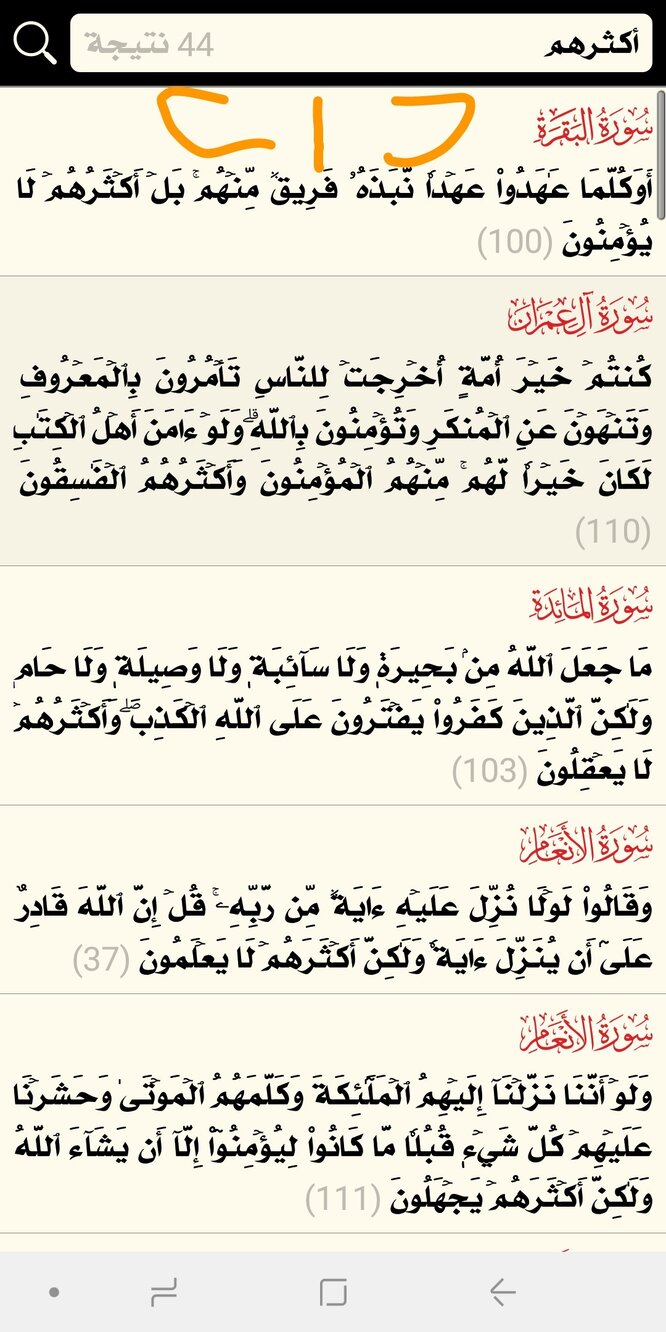 أكثرهم 44 نتيجة
سُورَةُ البَقَرَةِ
أَوَكُلَّمَا عَٰهَدُواْ عَهۡدٗا نَّبَذَهُۥ فَرِيقٞ مِّنۡهُمۚ بَلۡ أَكۡثَرُهُمۡ لَا
يُؤۡمِنُونَ (100)
سُورَةُ آلِ عِمۡرَانَ
كُنتُمۡ خَيۡرَ أُمَّةٍ أُخۡرِجَتۡ لِلنَّاسِ تَأۡمُرُونَ بِٱلۡمَعۡرُوفِ
وَتَنۡهَوۡنَ عَنِ ٱلۡمُنكَرِ وَتُؤۡمِنُونَ بِٱللَّهِۗ وَلَوۡ ءَامَنَ أَهۡلُ ٱلۡكِتَٰبِ
لَكَانَ خَيۡرٗا لَّهُمۚ مِّنۡهُمُ ٱلۡمُؤۡمِنُونَ وَأَكۡثَرُهُمُ ٱلۡفَٰسِقُونَ
(110)
سُورَةُ المَائِدَةِ
مَا جَعَلَ ٱللَّهُ مِنۢ بَحِيرَةٖ وَلَا سَآئِبَةٖ وَلَا وَصِيلَةٖ وَلَا حَامٖ
وَلَٰكِنَّ ٱلَّذِينَ كَفَرُواْ يَفۡتَرُونَ عَلَى ٱللَّهِ ٱلۡكَذِبَۖ وَأَكۡثَرُهُمۡ
لَا يَعۡقِلُونَ (103)
سُورَةُ الأَنۡعَامِ
وَقَالُواْ لَوۡلَا نُزِّلَ عَلَيۡهِ ءَايَةٞ مِّن رَّبِّهِۦۚ قُلۡ إِنَّ ٱللَّهَ قَادِرٌ
عَلَىٰٓ أَن يُنَزِّلَ ءَايَةٗ وَلَٰكِنَّ أَكۡثَرَهُمۡ لَا يَعۡلَمُونَ (37)
سُورَةُ الأَنۡعَامِ
وَلَوۡ أَنَّنَا نَزَّلۡنَآ إِلَيۡهِمُ ٱلۡمَلَٰٓئِكَةَ وَكَلَّمَهُمُ ٱلۡمَوۡتَىٰ وَحَشَرۡنَا
عَلَيۡهِمۡ كُلَّ شَيۡءٖ قُبُلٗا مَّا كَانُواْ لِيُؤۡمِنُوٓاْ إِلَّآ أَن يَشَآءَ ٱللَّهُ
وَلَٰكِنَّ أَكۡثَرَهُمۡ يَجۡهَلُونَ (111)